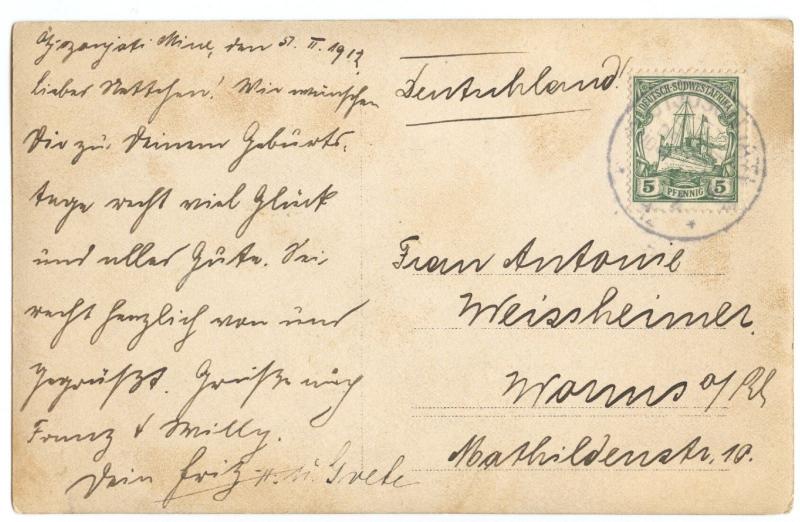 Otjozonjati Mine, den 5. II. 1912
liebes Nettchen! Wir wünschen
Dir zu Deinem Geburts-
tage recht viel Glück
und alles Gute. Sei
recht herzlich von uns
gegrüßt. Grüße auch
Franz & Willy.
Dein Fritz u. Grete
Deutschland!
DEUTSCH-SÜDWESTAFRIKA
5 PFENNIG 5
Frau Antonie
Weissheimer
Worms a/Rh
Mathildenstr. 10.